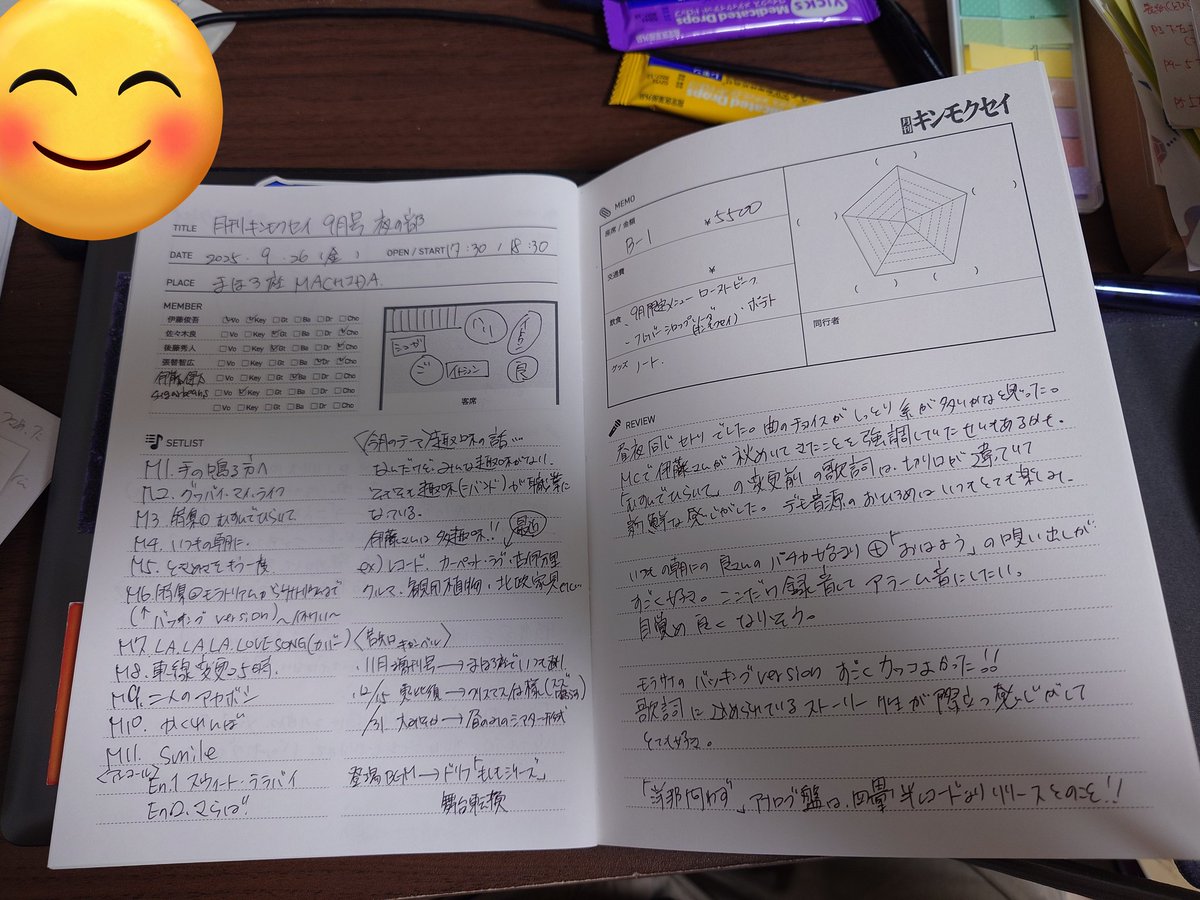 VICKS Medicated Drops
Medicated Drops
TITLE 月刊キンモクセイ 9月号 夜の部
DATE 2025. 9. 26 (金) OPEN / START 17:30 / 18:30
PLACE まほろ座 MACHIDA
MEMBER
伊藤俊吾 Vo Key Gt Ba Dr Cho
佐々木良 Vo Key Gt Ba Dr Cho
後藤秀人 Vo Key Gt Ba Dr Cho
張替智広 Vo Key Gt Ba Dr Cho
伊藤健太 Vo Key Gt Ba Dr Cho
Sugarbeans Vo Key Gt Ba Dr Cho
Vo Key Gt Ba Dr Cho
シュガ
ハリ
ご
イトシュン
良
客席
SETLIST
M1. 手の鳴る方へ
M2. グッバイ・マイ・ライフ
M3. むすんでひらいて
M4. いつもの朝に
M5. ときめきをもう一度
(↑バッキング version)
M7. LA.LA.LA.LOVE SONG(カバー)
M8. 車線変更25時
M9. 二人のアカボシ
M10. かくれんぼ
M11. Smile
<アンコール>
En.1 スウィート・ララバイ
En2. さらば
<今月のテーマ> 趣味の話…
なんだけど、みんな趣味がない。
そもそも趣味(=バンド)が職業に
なっている。
伊藤さんは多趣味!! 最近
ex) レコード、カーペット・ラグ・古伊万里
クルマ・観葉植物・北欧家具 etc…
<告知 >
・11月増刊号→まほろ座で
・12/15 恵比須→クリスマス
登場BGM→ドリフ「もしもシリーズ」
舞台転換
月刊キンモクセイ
MEMO
座席 / 金額
B-1 ¥5500
交通費 ¥
飲食 ・9月限定メニュー ローストビーフ
・フレーバーシロップソーダ(キンモクセイ)・ポテト
グッズ ノート
同行者
REVIEW
昼夜同じセトリでした。曲のチョイスがしっとり系が多いかなと思った。
MCで伊藤さんが秋めいてきたことを強調していたせいもあるかも。
「むすんでひらいて」の変更前の歌詞は、切り口が違っていて
新鮮な感じがした。デモ音源のおひろめはいつもとても楽しみ。
いつもの朝にの良さんの ⊕「おはよう」の唄い出しが
すごく好き。ここだけ録音してアラーム音にしたい。
目覚め良くなりそう。
モラサイのバッキングversionすごくカッコよかった!!
歌詞に込められているストーリー性が際立つ感じがして
とても好き。
「洋邦問わず」アナログ盤は、四畳半レコードよりリリースとのこと!!